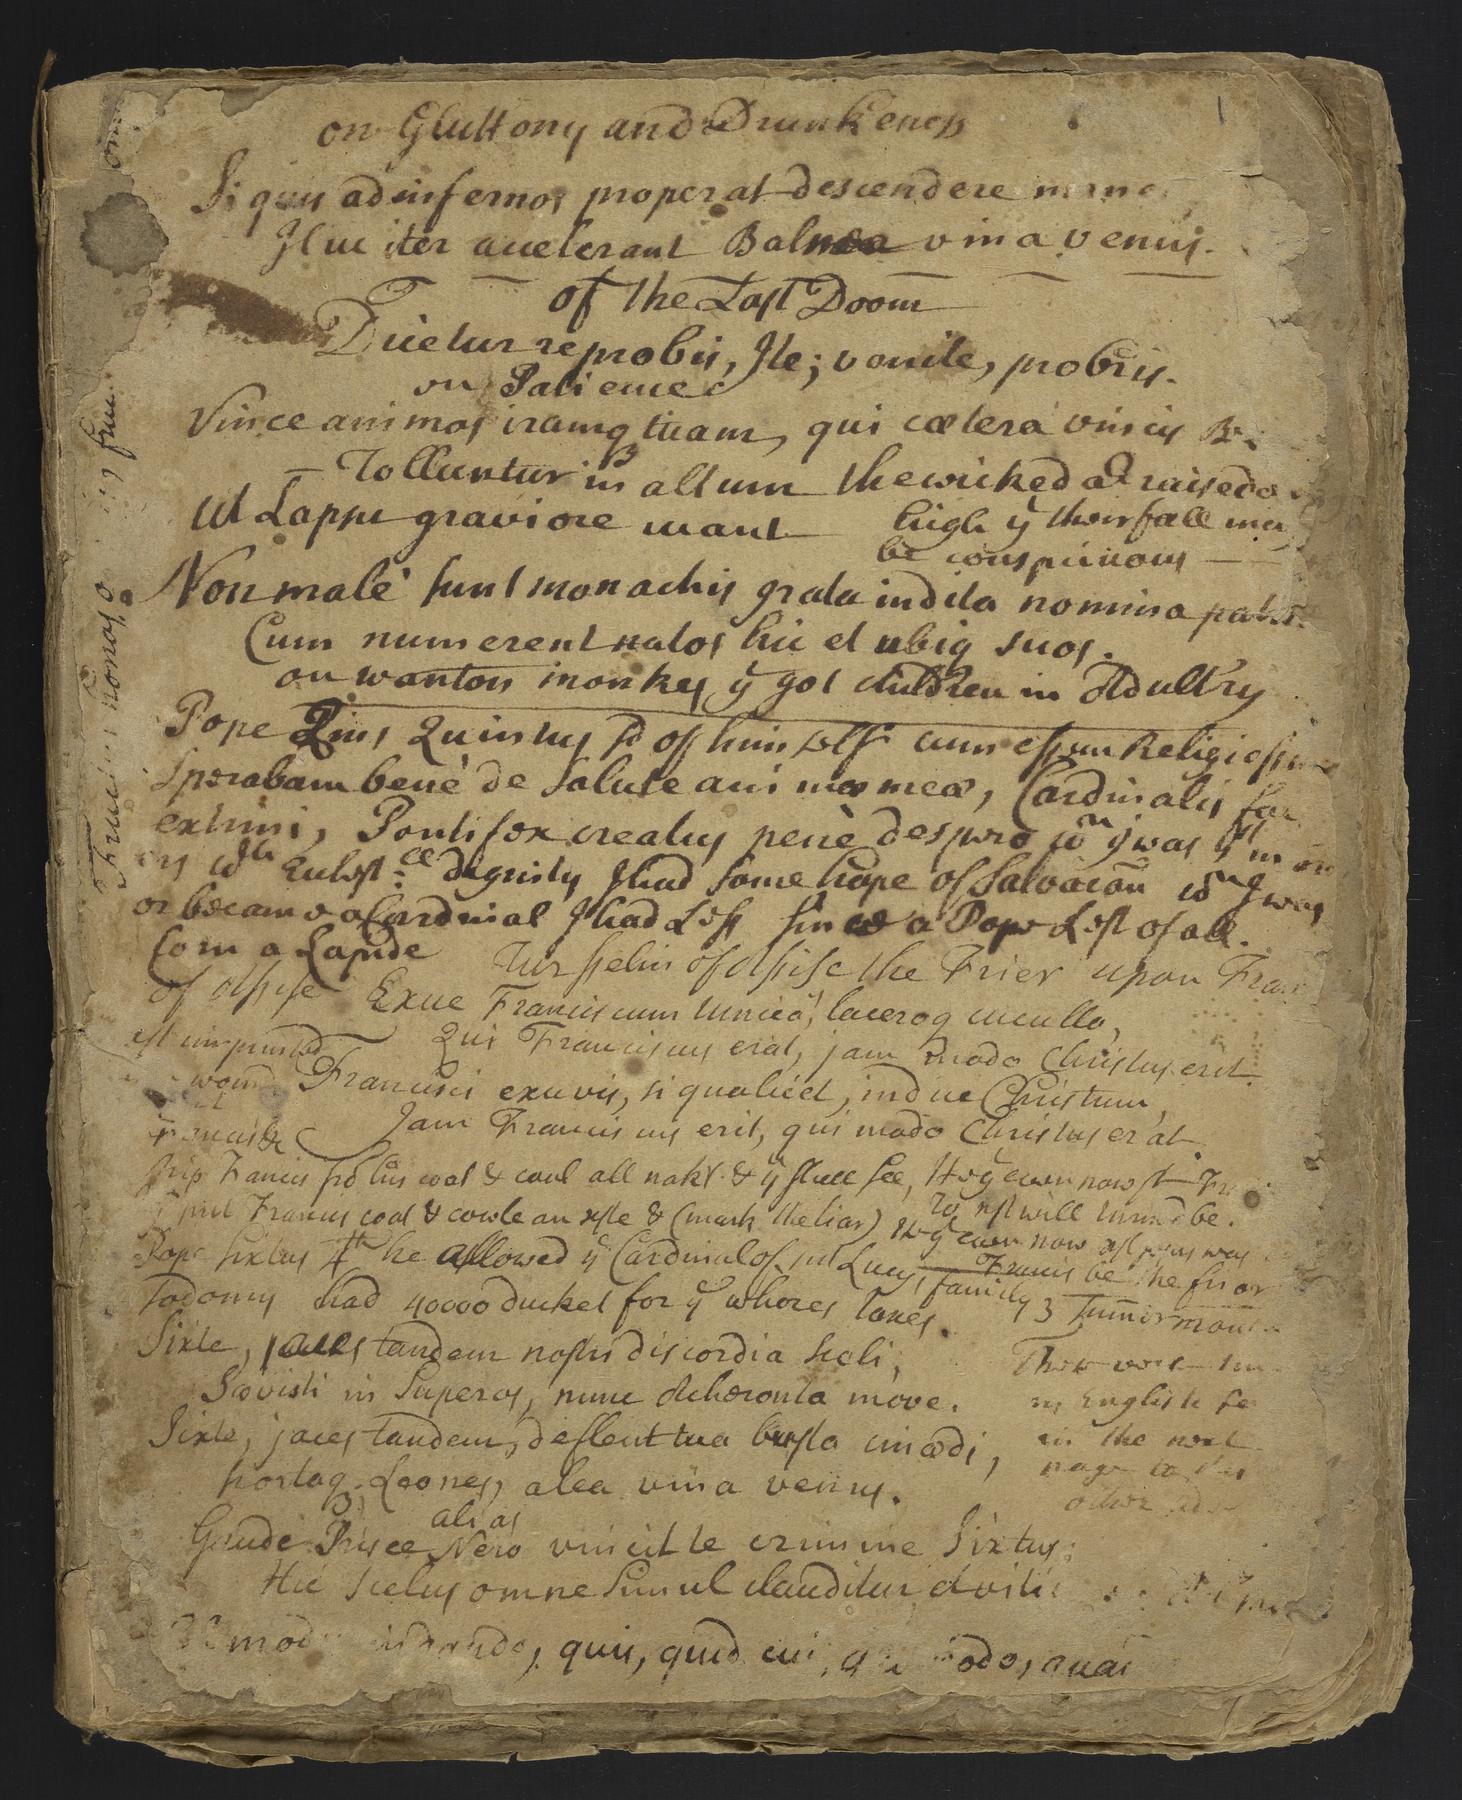 1
on Gluttony and Drunkeness
Si quis ad infernos properat descendere
Huc iter accelerant Balnea vina venus.
of the Last Doom
Dicetur reprobis, Ite; venite, probis.
on Patience
Vince animos iramq tuam, qui cætera vincis
Tolluntur in altum the wicked are raised
Ut Lapsu graviore ruant high yt their fall may
be conspicuous
Non malè sunt monachis grata indita nomina patrū
Cum numerent natos hic et ubiq suos.
on wanton monkes yt got children in Adultry
Pope Pius Quintus sd of himself cum essem Religiosus
sperabam benè de salute animæ meæ, Cardinalis factus
extimui, Pontifex creatus penè despero wn I was yst in
wth Eclest:ce dignity I had some hope of Salvacōn wn I was
or became a Cardinal I had Less since a Pope Lest of all.
Com a Lapide
Turselin of Assise the Frier upon Fran
of Assise Exue Franciscum tunicâ, laceroq cucullo,
est imprinted Qui Franciscus erat, jam modo Christus erit.
wound Francisci exuvis, si qua licet, indue Christum,
Francisks Jam Franciscus erit, qui modo Christus erat.
strip Francis fro his coat & coul all nakt & yu shall see, He yt even now st
put Francis coat & cowle on xste & (mark the liar) He yt even now
To xst will turned be.
Francis be the friar
Pope Sixtus 4th he allowed ye Cardinal of st Lucys family
Sodomy had 40000 ducket for ye whores taxes. 3 summer
Sixte, jaces tandem nostri discordia secli,
Sævisti in Superos, nunc Acheronta move.
Sixte, jaces tandem, deflent tua busta cinædi,
Scortaq Leones, alea vina venus.
alias
Gaude Prisce Nero vincit te crimine Sixtus:
Hic scelus omne simul clauditur et
quis, quid cui,
These
in English
in the next
page to this
other